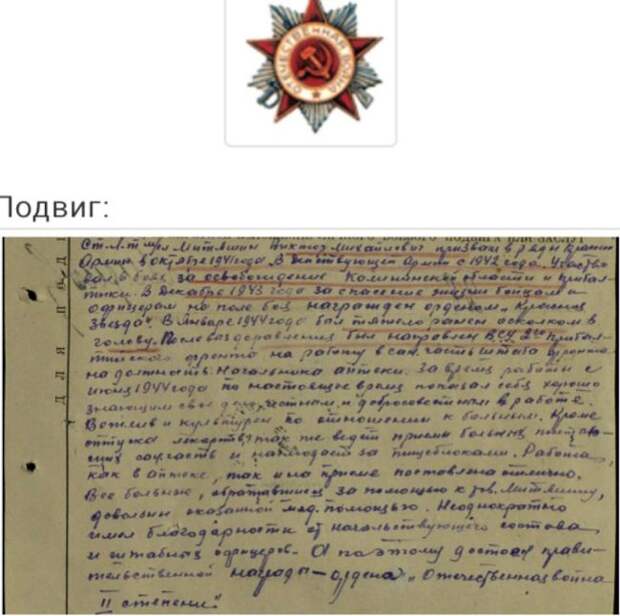 ОТЕЧЕСТВЕННАЯ ВОЙНА
Подвиг:
Митяшин Виктор Михайлович призван в ряды Красной
Армии в октябре 1941 года. В действующей Армии с 1942 года. Участво-
вал в боях за освобождение Калининской области и Прибал-
тики. В Декабре 1943 года за спасение жизни бойцам
офицерам на поле боя награжден орденом „Красная
Звезда“. В Январе 1944 года был тяжело ранен осколком в
голову. После выздоровления был направлен ВСУ 2го Прибал-
тийского фронта на работу в сан. часть штаба фронта
на должность Начальника аптеки. За время работы с
июня 1944 года по настоящее время показал себя хорошо
знающим свое дело, честным и добросовестным в работе.
Вежлив и культурен по отношению к больным. Кроме
отпуска лекарств, так же ведет приемы больных
санчасть и наблюдает за пищеблоками. Работа,
как в аптеке, так и на приеме поставлена отлично.
Все больные, обратившиеся за помощью к тов. Митяшину,
довольны оказанной мед. помощью. Неоднократно
имел благодарности от начальствующего состава
и штабных офицеров. А поэтому достоен прави-
тельственной награды – ордена „Отечественная война
II степени“.
Д Л Я П О Д